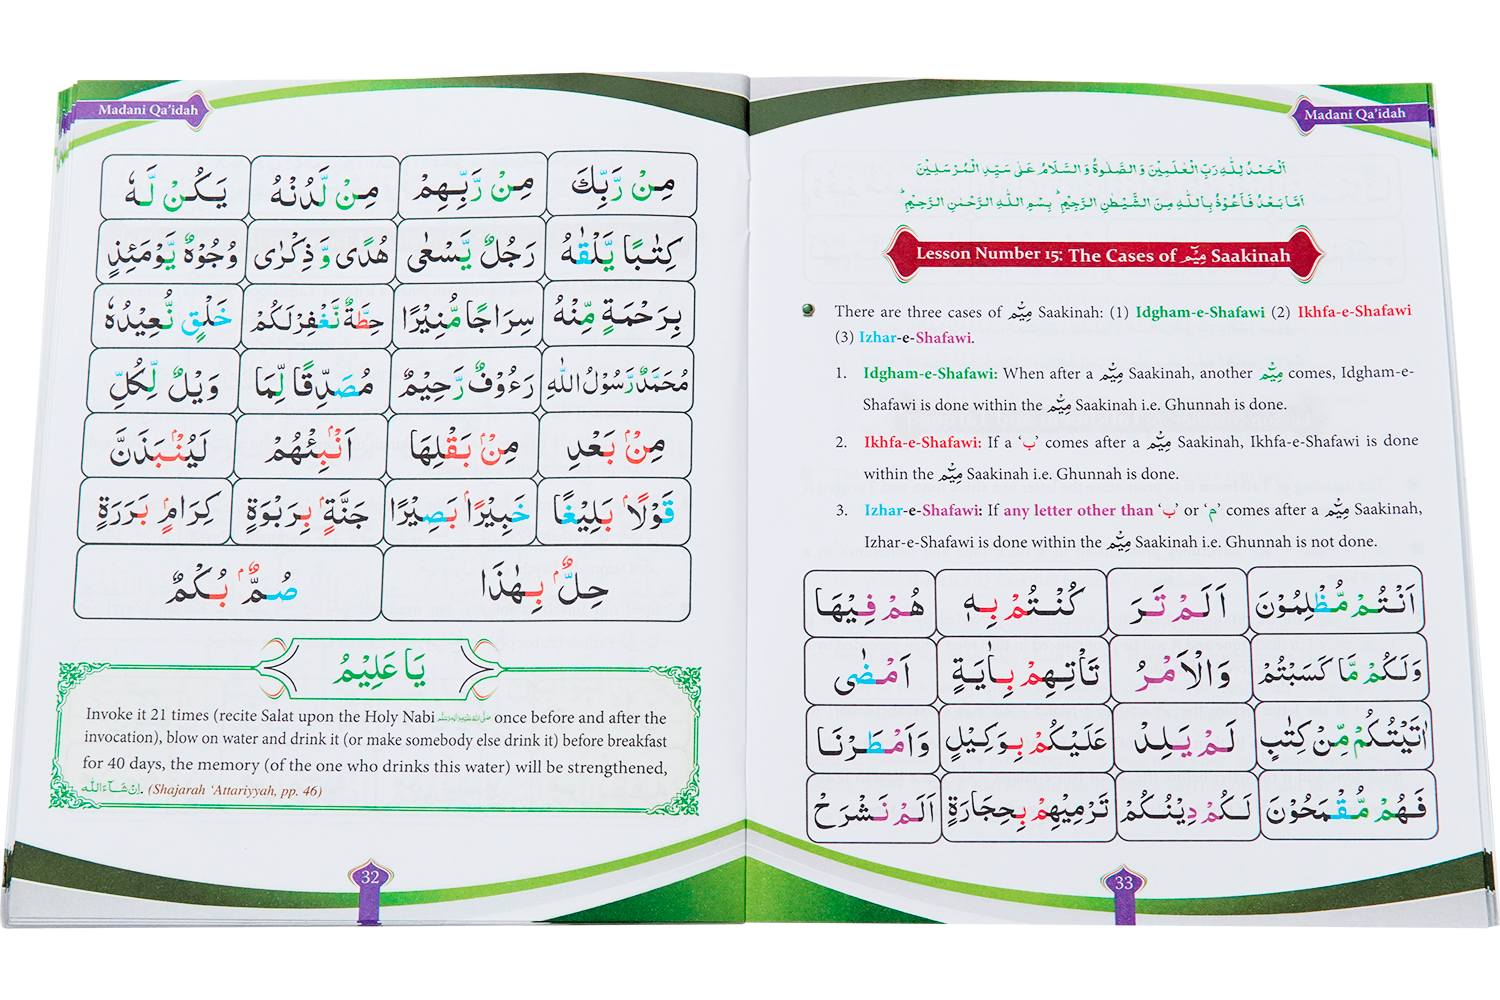 Madani Qa'idah
مِنْ رَّبِّكَ مِنْ رَّبِّهِمْ مِنْ لَّدُنْهُ يَكُنْ لَّهٗ
كِتٰبًا يَّلْقٰىهُ رَجُلٌ يَّسْعٰى هُدًى وَّ ذِكْرٰى وُجُوْهٌ يَّوْمَئِذٍ
بِرَحْمَةٍ مِّنْهُ سِرَاجًا مُّنِيْرًا حِطَّةٌ نَّغْفِرْلَكُمْ خَلْقٍ نُّعِيْدُهٗ
مُحَمَّدٌ رَّسُوْلُ اللهِ رَءُوْفٌ رَّحِيْمٌ مُصَدِّقًا لِّمَا وَيْلٌ لِّكُلِّ
مِنْۢ بَعْدِ مِنْۢ بَقْلِهَا اَنْۢبِئْهُمْ لَيُنْۢبَذَنَّ
قَوْلًاۢ بَلِيْغًا خَبِيْرًاۢ بَصِيْرًا جَنَّةٍۭ بِرَبْوَةٍ كِرَامٍۭ بَرَرَةٍ
حِلٌّۢ بِهٰذَا صُمٌّۢ بُكْمٌ
يَا عَلِيْمُ
Invoke it 21 times (recite Salat upon the Holy Nabi صَلَّى اللهُ عَلَيْهِ وَاٰلِهٖ وَسَلَّم once before and after the
invocation), blow on water and drink it (or make somebody else drink it) before breakfast
for 40 days, the memory (of the one who drinks this water) will be strengthened,
اِنْ شَآءَ اللّٰه. (Shajarah ‘Attariyyah, pp. 46)
32
Madani Qa'idah
اَلْحَمْدُ لِلّٰهِ رَبِّ الْعٰلَمِيْنَ وَ الصَّلٰوةُ وَ السَّلَامُ عَلٰى سَيِّدِ الْمُرْسَلِيْنَ
اَمَّا بَعْدُ فَاَعُوْذُ بِاللّٰهِ مِنَ الشَّيْطٰنِ الرَّجِيْمِ ؕ بِسْمِ اللّٰهِ الرَّحْمٰنِ الرَّحِيْمِ ؕ
Lesson Number 15: The Cases of مِيْم Saakinah
There are three cases of مِيْم Saakinah: (1) Idgham-e-Shafawi (2) Ikhfa-e-Shafawi
(3) Izhar-e-Shafawi.
1. Idgham-e-Shafawi: When after a مِيْم Saakinah, another مِيْم comes, Idgham-e-
Shafawi is done within the مِيْم Saakinah i.e. Ghunnah is done.
2. Ikhfa-e-Shafawi: If a ‘ب’ comes after a مِيْم Saakinah, Ikhfa-e-Shafawi is done
within the مِيْم Saakinah i.e. Ghunnah is done.
3. Izhar-e-Shafawi: If any letter other than ‘ب’ or ‘م’ comes after a مِيْم Saakinah,
Izhar-e-Shafawi is done within the مِيْم Saakinah i.e. Ghunnah is not done.
اَنْتُمْ مُّظْلِمُوْنَ اَلَمْ تَرَ كُنْتُمْ بِهٖ هُمْ فِيْهَا
وَلَكُمْ مَّا كَسَبْتُمْ وَالْاَمْرُ تَاْتِهِمْ بِاٰيَةٍ اَمْضٰى
اٰتَيْتُكُمْ مِّنْ كِتٰبٍ لَمْ يَلِدْ عَلَيْكُمْ بِوَكِيْلٍ وَاَمْطَرْنَا
فَهُمْ مُّقْمَحُوْنَ لَكُمْ دِيْنُكُمْ تَرْمِيْهِمْ بِحِجَارَةٍ اَلَمْ نَشْرَحْ
33